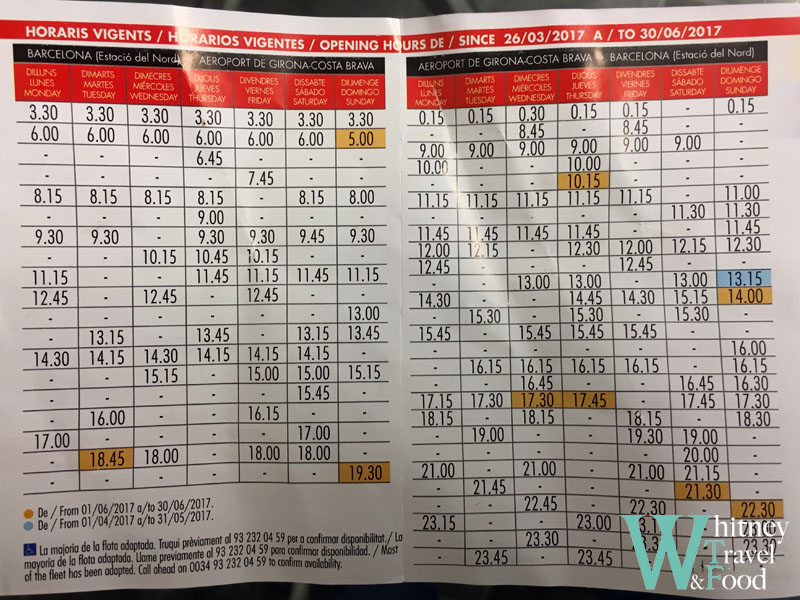 HORARIS VIGENTS / HORARIOS VIGENTES / OPENING HOURS DE / SINCE 26/03/2017 A / TO 30/06/2017
BARCELONA (Estació del Nord) AEROPORT DE GIRONA-COSTA BRAVA
DILLUNS LUNES MONDAY
DIMARTS MARTES TUESDAY
DIMECRES MIÉRCOLES WEDNESDAY
DIJOUS JUEVES THURSDAY
DIVENDRES VIERNES FRIDAY
DISSABTE SÁBADO SATURDAY
DIUMENGE DOMINGO SUNDAY
3.30 3.30 3.30 3.30 3.30 3.30 3.30
6.00 6.00 6.00 6.00 6.00 6.00 5.00
- - - 6.45 - - -
- - - - 7.45 - -
8.15 8.15 8.15 8.15 - 8.15 8.00
- - - 9.00 - - -
9.30 9.30 - 9.30 9.30 9.45 9.30
- - 10.15 10.45 10.15 - -
11.15 - - 11.45 11.15 11.45 11.15
12.45 - 12.45 - 12.45 - -
- - - - - - 13.00
- 13.15 - 13.45 - 13.15 13.45
14.30 14.15 14.30 14.15 14.15 14.15 -
- - 15.15 - 15.00 15.00 15.15
- - - - - 15.45 -
- 16.00 - - 16.15 - -
17.00 - - - - 17.00 -
- 18.45 18.00 - 18.00 18.00 -
- - - - - - 19.30
De / From 01/06/2017 a/to 30/06/2017.
De / From 01/04/2017 a/to 31/05/2017.
La majoria de la flota adaptada. Truqui prèviament al 93 232 04 59 per a confirmar disponibilitat./ La
mayoría de la flota adaptada. Llame previamente al 93 232 04 59 para confirmar disponibilidad. / Most
of the fleet has been adapted. Call ahead on 0034 93 232 04 59 to confirm availability.
AEROPORT DE GIRONA-COSTA BRAVA BARCELONA (Estació del Nord)
DILLUNS LUNES MONDAY
DIMARTS MARTES TUESDAY
DIMECRES MIÉRCOLES WEDNESDAY
DIJOUS JUEVES THURSDAY
DIVENDRES VIERNES FRIDAY
DISSABTE SÁBADO SATURDAY
DIUMENGE DOMINGO SUNDAY
0.15 0.15 0.30 0.15 0.15 - 0.15
- - 8.45 - 8.45 - -
9.00 9.00 9.00 9.00 9.00 9.00 -
10.00 - - 10.00 - - -
- - - 10.15 - - -
11.15 11.15 11.15 11.15 11.15 - 11.00
- - - - - 11.30 11.30
11.45 11.45 11.45 11.45 - - 11.45
12.00 12.15 - 12.30 12.00 12.15 12.30
12.45 - - - 12.45 - -
- - 13.00 13.00 - 13.00 13.15
14.30 - - 14.45 14.30 15.15 14.00
- 15.30 - 15.30 - 15.30 -
15.45 15.45 15.45 15.45 15.45 - -
- - - - - - 16.00
- 16.15 16.15 16.15 16.15 - 16.15
- - 16.45 - - 16.45 16.30
17.15 17.30 17.30 17.45 - 17.45 17.30
18.15 - 18.15 - 18.15 - 18.30
- 19.00 - - 19.30 19.00 -
- - - - - 20.00 -
21.00 - 21.00 - 21.00 21.15 -
- 21.45 - - - 21.30 -
- - 22.45 - 22.30 - 22.30
23.15 - - 23.00
- - 23.30 -
- 23.45 - 23.45 -
Whitney
Travel
&Food